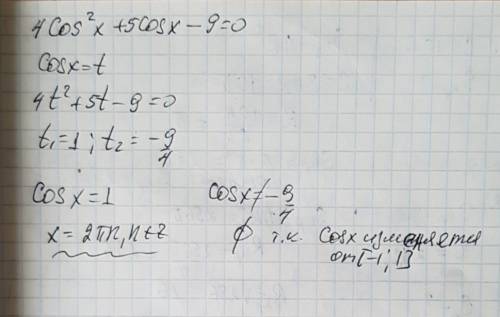 4cos²x+5cosx-9=0
cosx=t
4t²+5t-9=0
t₁=1; t₂=-9/4
cosx=1
x=2πn, n∈Z
cosx≠-9/4
∅ т.к. cosx изменяется
от [-1; 1]